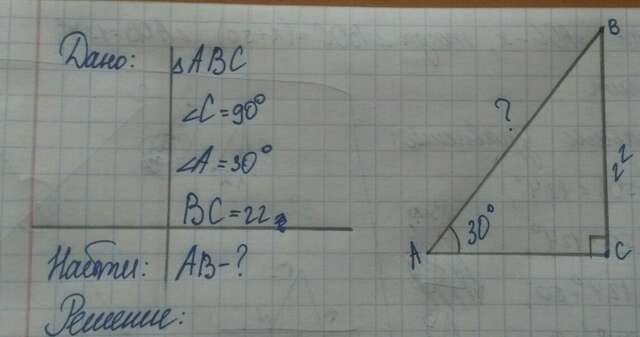 Дано: △ABC
∠C=90°
∠A=30°
BC=22
Найти: AB-?
Решение:
B
?
22
A
30°
C